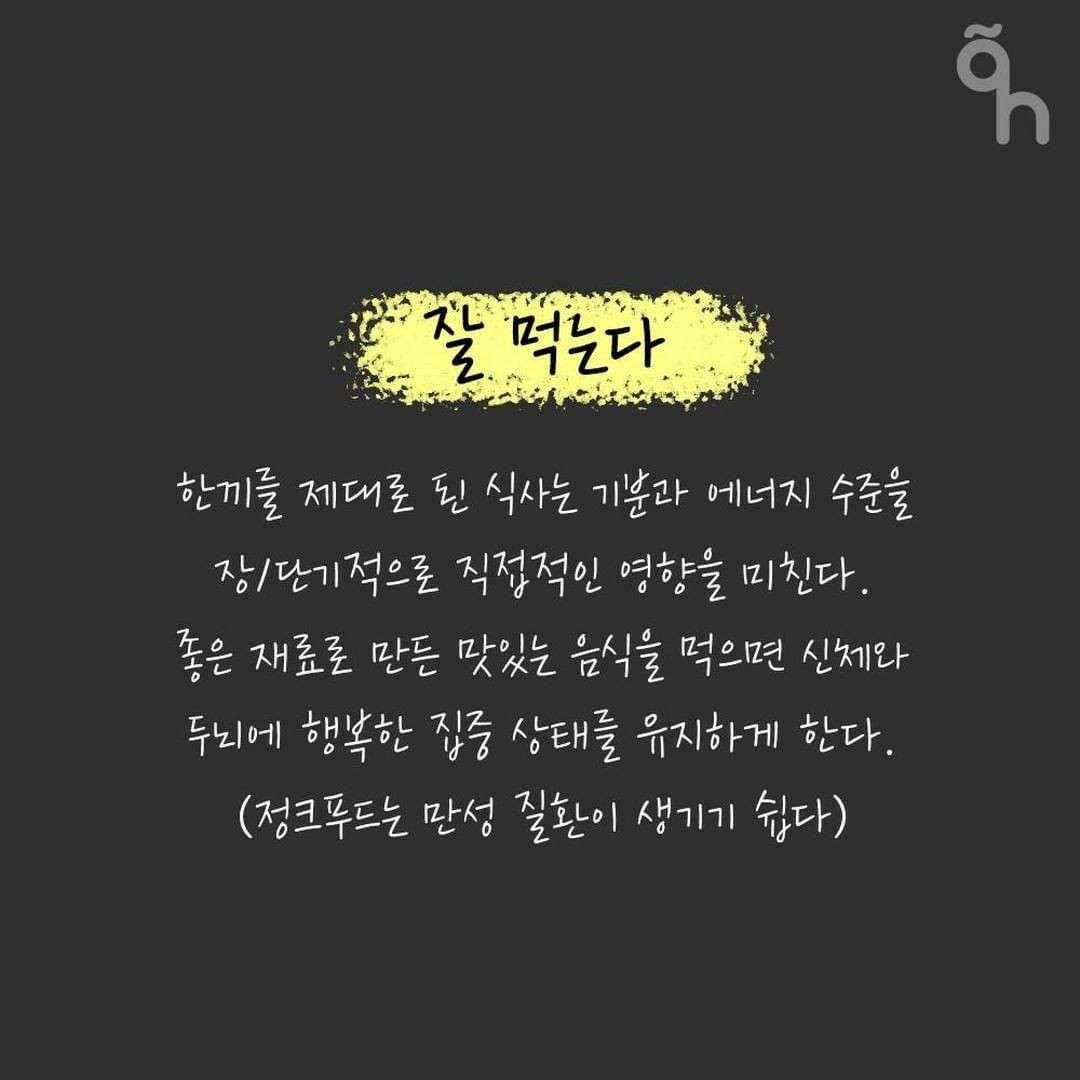 잘 먹는다
한끼를 제대로 된 식사는 기분과 에너지 수준을
장/단기적으로 직접적인 영향을 미친다.
좋은 재료로 만든 맛있는 음식을 먹으면 신체와
두뇌에 행복한 집중 상태를 유지하게 한다.
(정크푸드는 만성 질환이 생기기 쉽다)